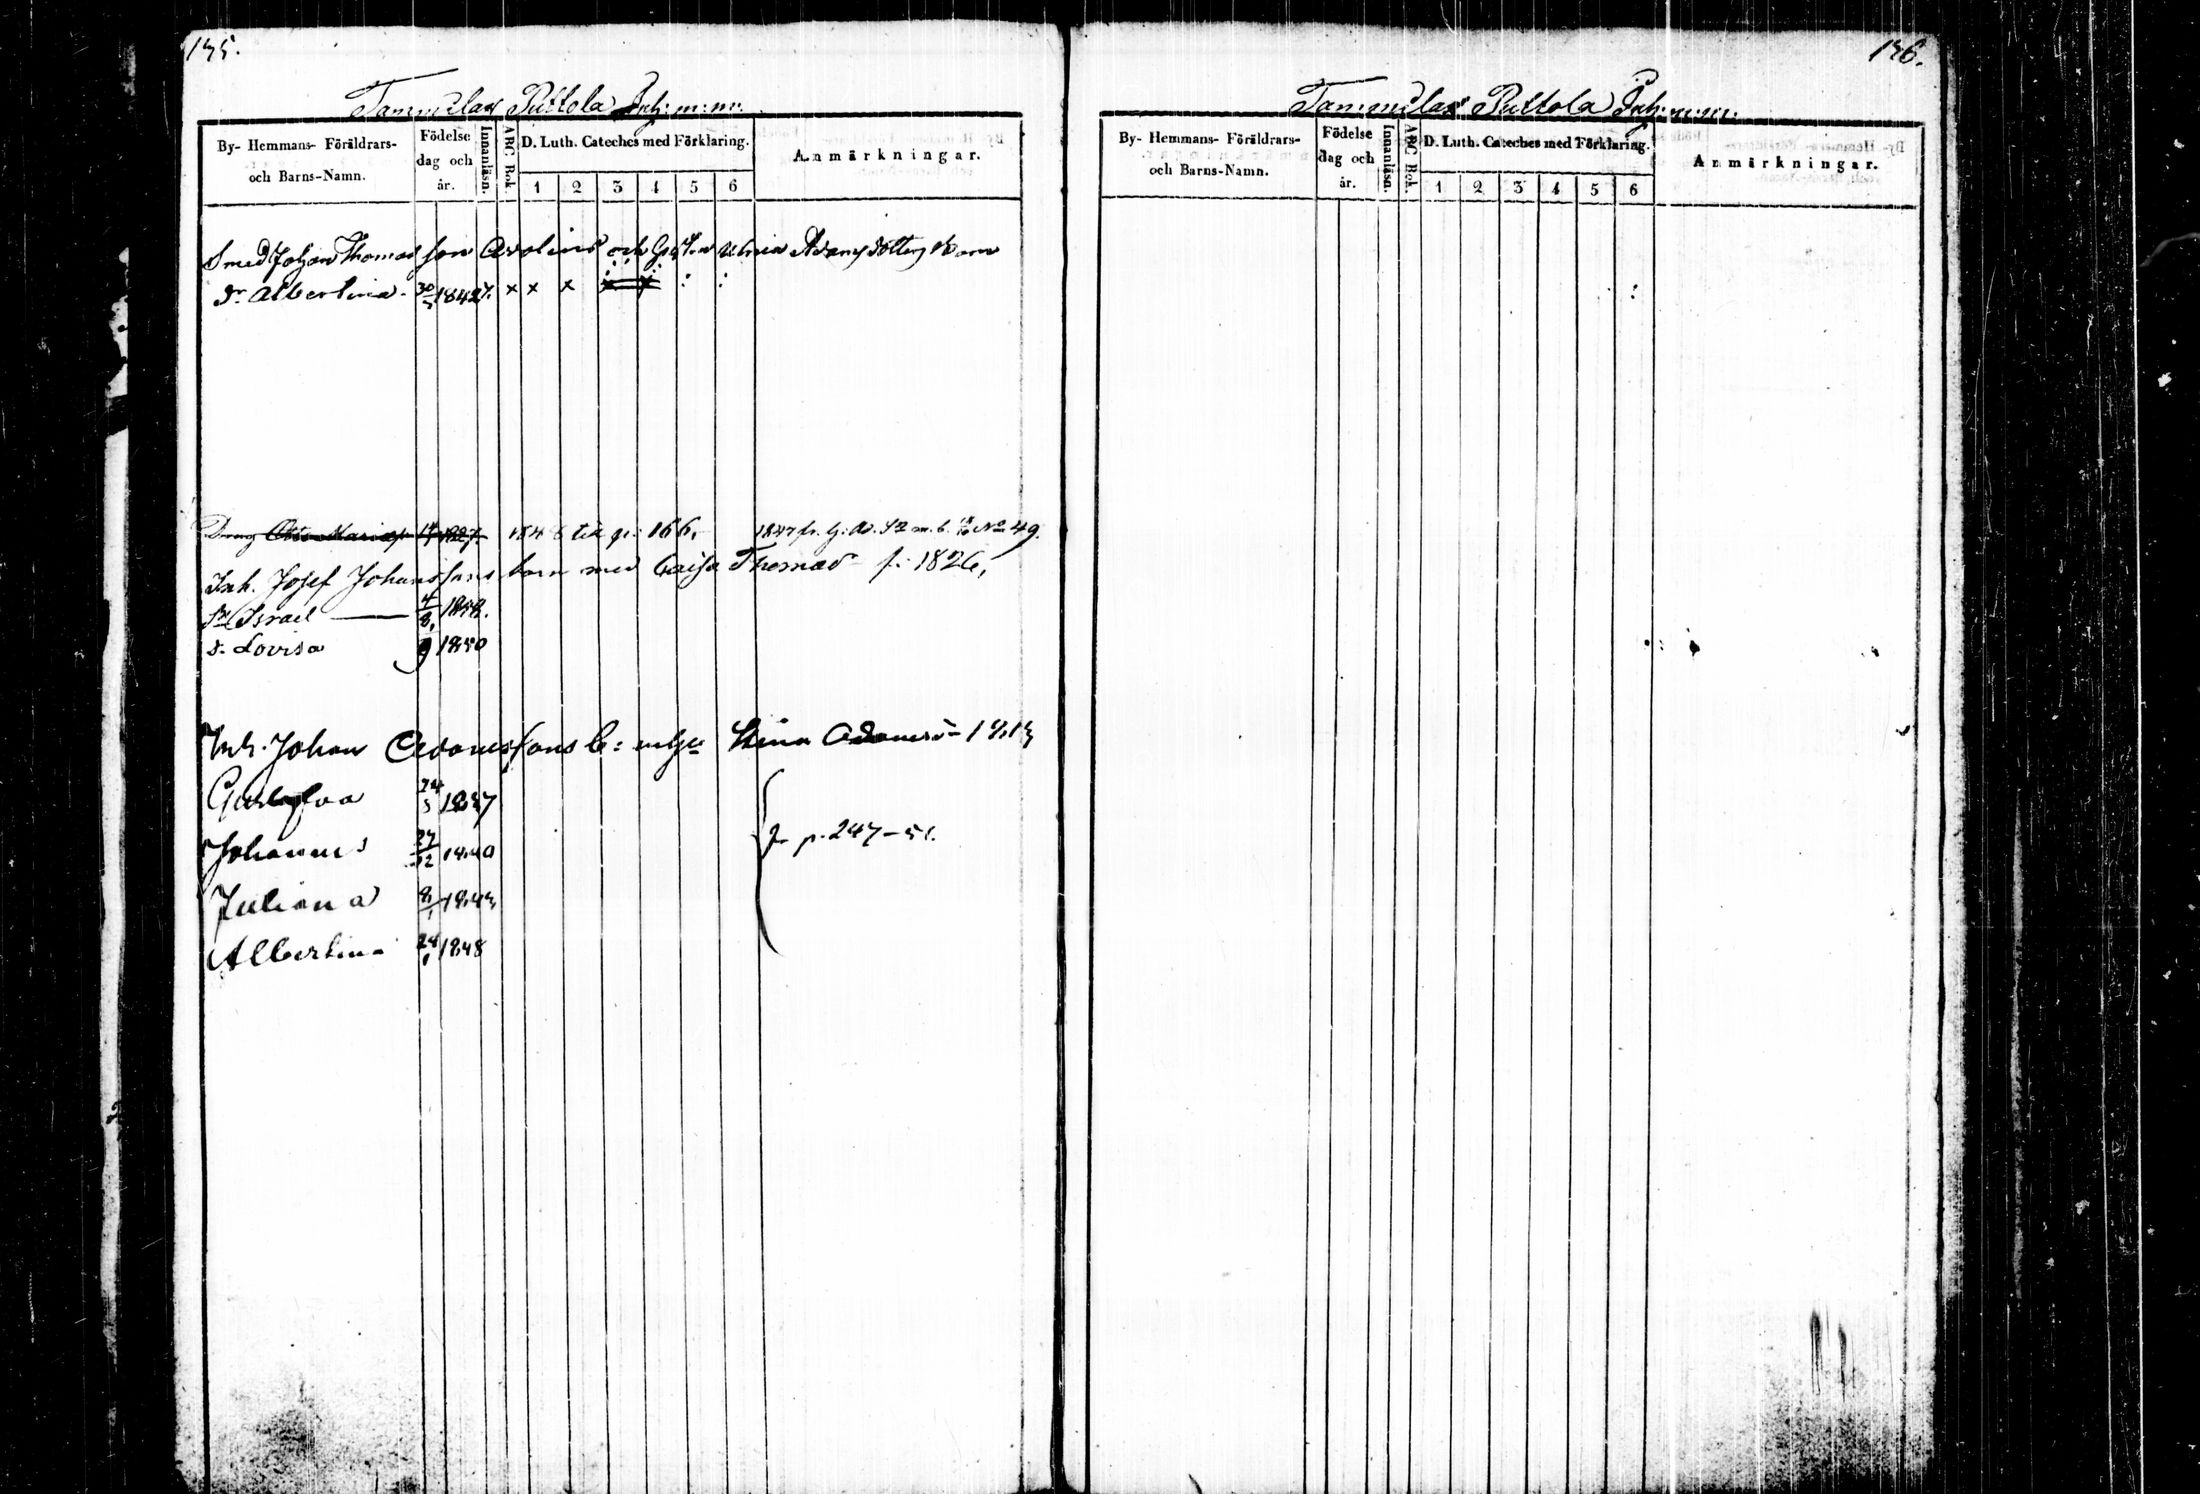 175.
Tammilax Puttola Inh: m:m:
By- Hemmans- Föräldrars- och Barns-Namn.
Födelse dag och år.
Innanläsn.
ABC Bok.
D. Luth. Cateches med Förklaring.
1 2 3 4 5 6
Anmärkningar.
Smed Johan Thomasson och Adamsdotters Barn
dr Albertina 30 1842 x x x
Dräng 1827 1848 till p: 166, 1847 fr. No 49.
Inh. Josef Johanssons barn med Caisa Thomasd f: 1826,
Sn Israel 4/8
d. Lovisa 9 1850
Inh. Johan Adamssons b: m Stina Adamsd
Gustafva 24/5 1837
Johannes 27/12 1840
Juliana 8/1 1843
Albertina 28 1848
p. 247-51.
176.
Tammilax Puttola Inh: m:m:
By- Hemmans- Föräldrars- och Barns-Namn.
Födelse dag och år.
Innanläsn.
ABC Bok.
D. Luth. Cateches med Förklaring.
1 2 3 4 5 6
Anmärkningar.